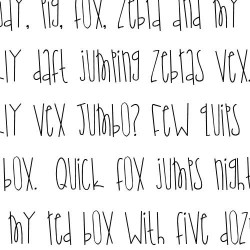 day, pig, fox, zebra and my
ly daft jumping zebras vex.
ly vex jumbo? Few quips
box. Quick fox jumps night
my red box with five doz